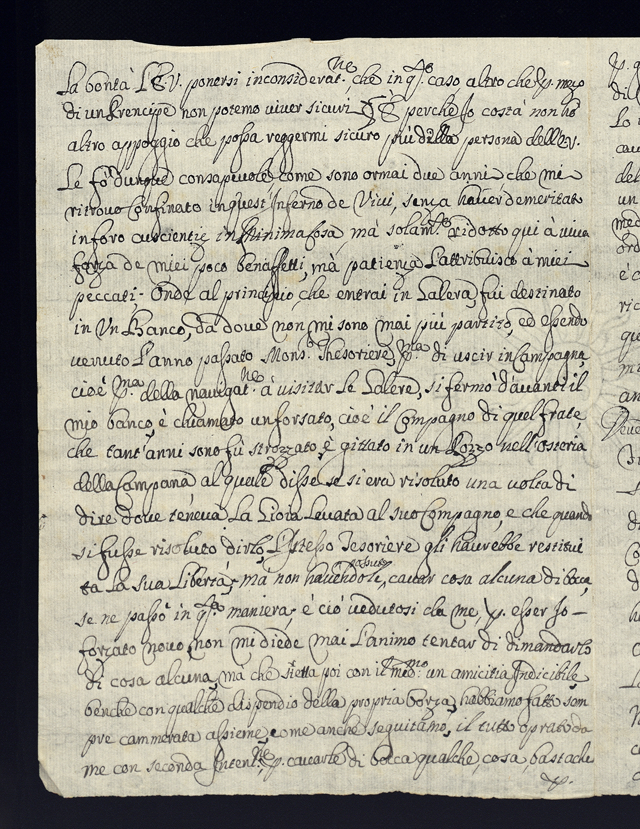 La bontà L S.V. ponersi inconsiderat.ne che in q.to caso altro che p. mezo
di un Prencipe non potemo viver sicuri perche Io costà non hò
altro appoggio che possa reggermi sicuro più della persona dell
Le fò dunque consapevole come sono ormai due anni che mi
ritrovo Confinato in quest'Inferno de Vivi, senza haver demeritato
in foro cuscientię in Minima Cosa, mà solam.te ridotto qui à viva
forza de miei poco benaffetti, mà patienza l'attribuisco à miei
peccati. Onde al principio che entrai in Galera, fui destinato
in Un Banco, da dove non mi sono mai più partito, ed essendo
venuto l'anno passato Mons.r Thesoriere, p.ma di uscir in Campagna,
cioè p.ma della navigat.ne à visitar le Galere, si fermò d'avanti il
mio banco, è chiamato un forsato, cioè il Compagno di quel frate
che tant'anni sono fù strozzato, è gittato in un Pozzo nell'osteria
della Campana al quale disse se si era risoluto una volta di
dire dove teneva la Gioia levata al suo Compagno, e che quando
si fusse risoluto dirlo, l'istesso Tesoriere gli haverebbe restitui
ta la sua libertà, mà non havendole possuto cavar cosa alcuna di bocca,
se ne passò in q.ta maniera; è ciò vedutosi da me, p. esser Io
forzato novo, non mi diede mai l'animo tentar di dimandarlo
di cosa alcuna, mà che stretta poi con il med.mo un amicitia Indicibile,
benche con qualche dispendio della propria borza, habbiamo fatto sem
pre cammerata assieme, come anche seguitamo, il tutto oprato da
me con seconda Intent.ne p. cavarle di bocca qualche cosa, basta che